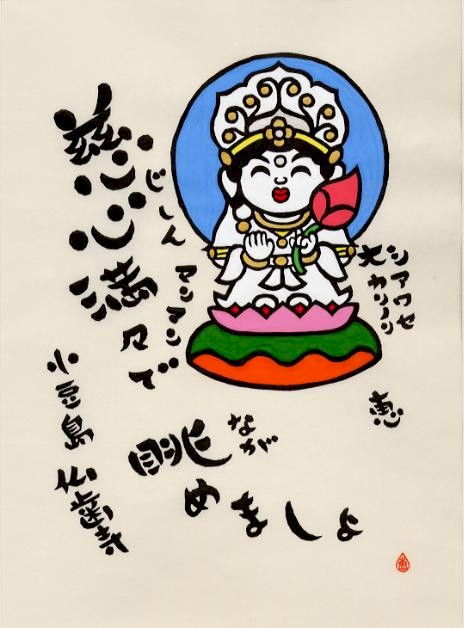 シアワセ
大カンノン
恵
慈心満々で
じしん マンマン
眺めましょ
なが
小豆島 仏歯寺